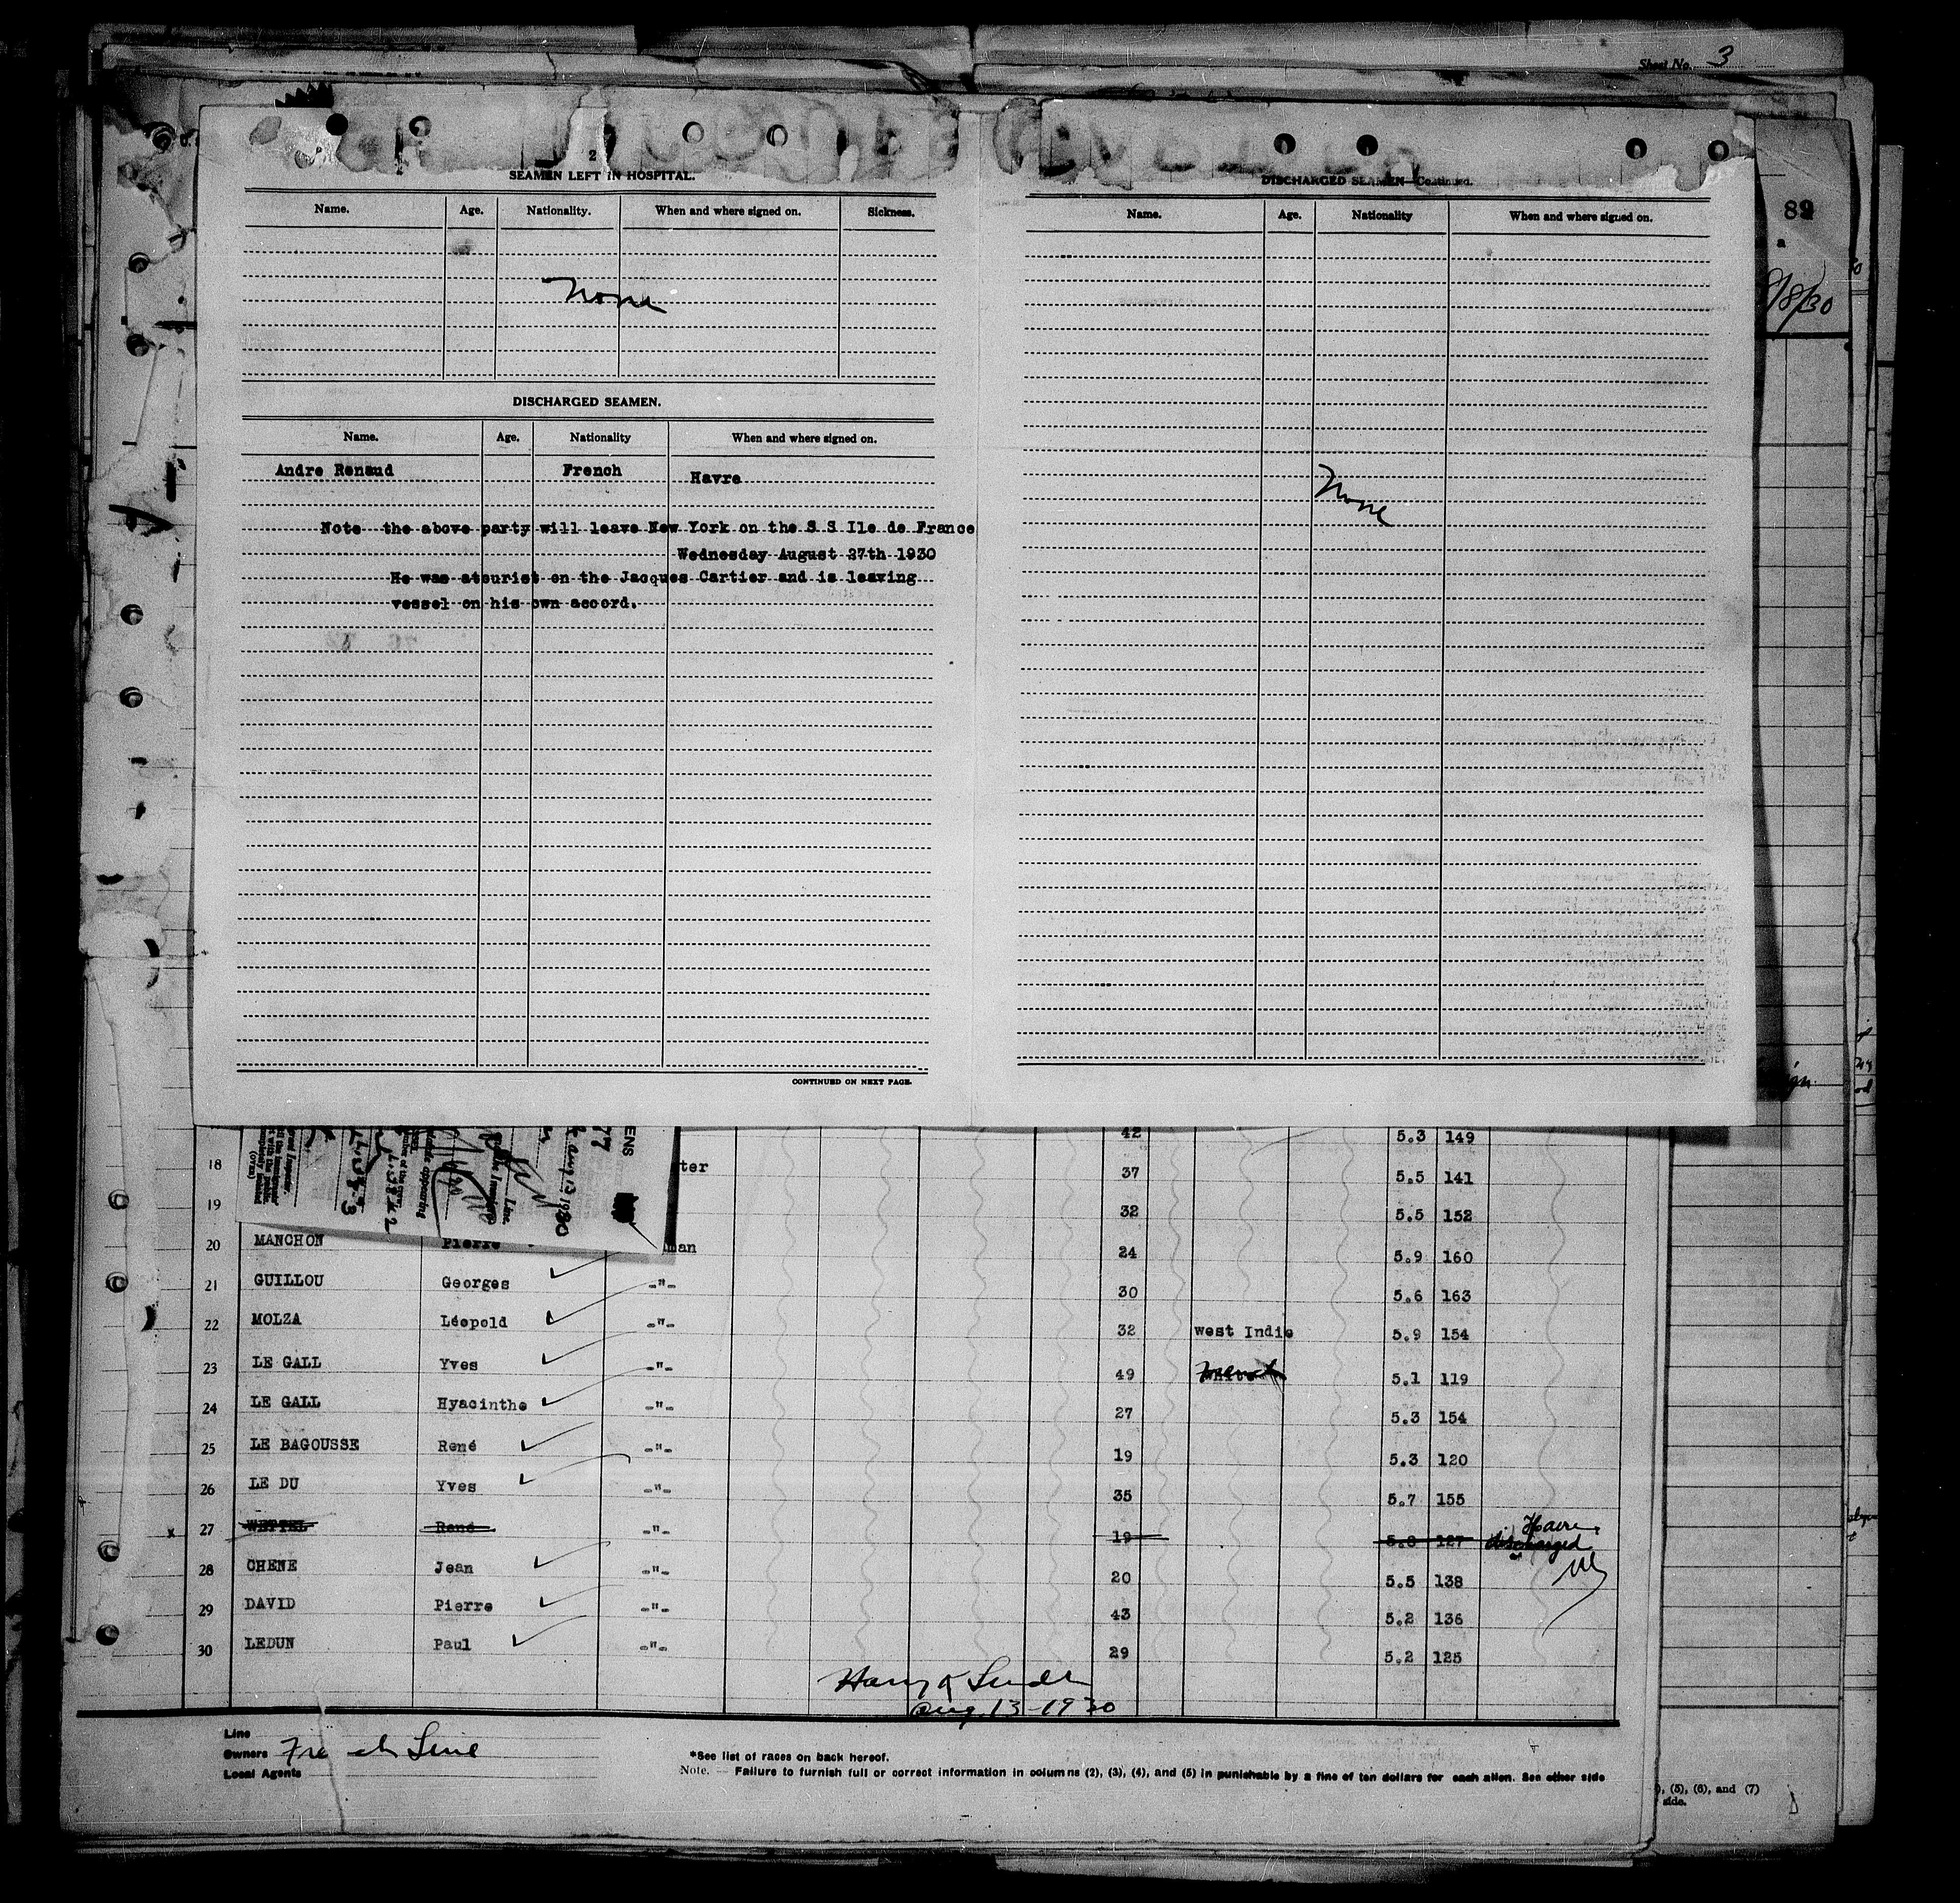 Sheet No. 3
2
SEAMEN LEFT IN HOSPITAL.
Name. Age. Nationality. When and where signed on. Sickness.
None
DISCHARGED SEAMEN.
Name. Age. Nationality When and where signed on.
Andre Renaud French Havre
Note the above party will leave New York on the S S Ile de France
Wednesday August 27th 1930
He was atourist on the Jacques Cartier and is leaving
vessel on his own accord.
CONTINUED ON NEXT PAGE.
DISCHARGED SEAMEN—Continued.
Name. Age. Nationality When and where signed on.
None
8/8/30
42 5.3 149
18 ter 37 5.5 141
19 32 5.5 152
20 MANCHON Pierre man 24 5.9 160
21 GUILLOU Georges -"- 30 5.6 163
22 MOLZA Léopold -"- 32 west Indie 5.9 154
23 LE GALL Yves -"- 49 5.1 119
24 LE GALL Hyacinthe -"- 27 5.3 154
25 LE BAGOUSSE René -"- 19 5.3 120
26 LE DU Yves -"- 35 5.7 155
x 27 WETTEL René -"- 19 5.8 127 Havre discharged
28 CHENE Jean -"- 20 5.5 138
29 DAVID Pierre -"- 43 5.2 136
30 LEDUN Paul -"- 29 5.2 125
Aug 13-1930
Line
Owners French Line
Local Agents
*See list of races on back hereof.
Note. — Failure to furnish full or correct information in columns (2), (3), (4), and (5) in punishable by a fine of ten dollars for each alien. See other side
(5), (6), and (7)
side.